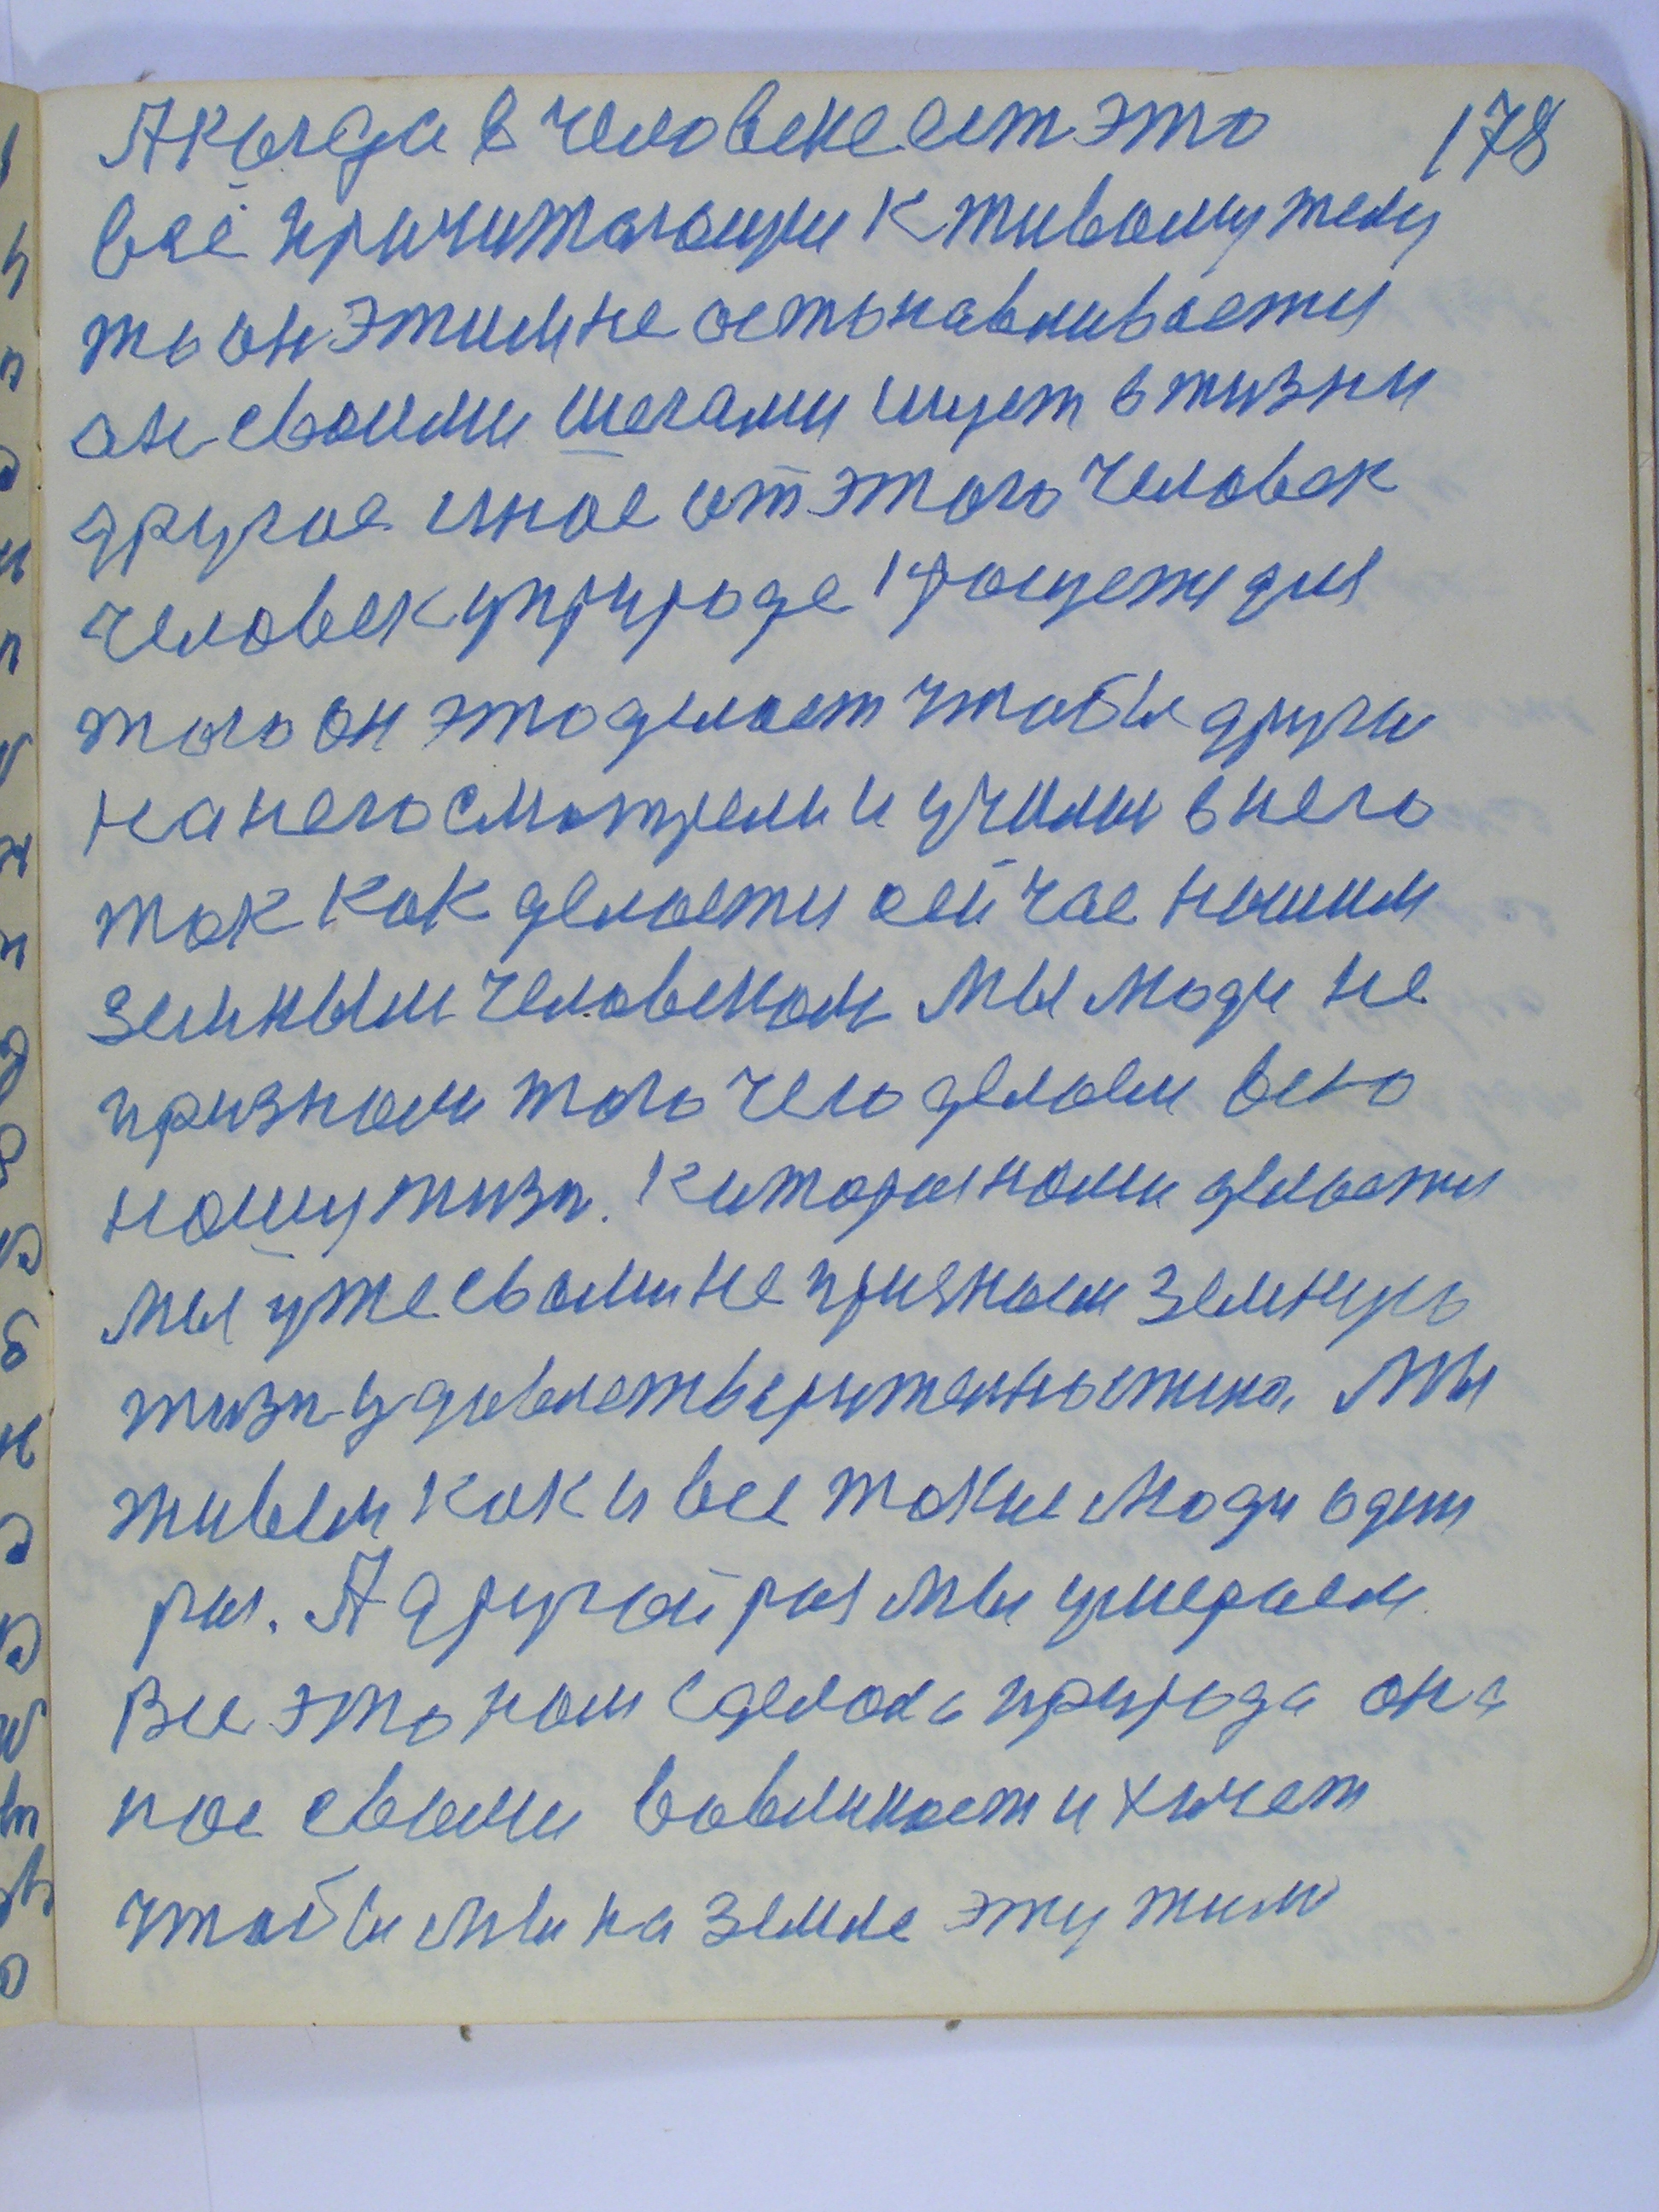 178
Акогда в человеке ест это
всё причитающи к живому телу
то он этим не останавливается
он своими шегами ищет в жизни
другое иное от этого человек
человек уприроде троцется для
того он это делает чтобы други
на него смотрели и учили в него
так как делается сейчас нашим
земным человеком мы люди не
признаем того чего делаем всю
нашу жизн. Котория нами делается
мы уже сваими не признаем земную
жизн удовлетворителностию. Мы
живем как и все такие люди один
раз. А другой раз мы умераем
Все это нам сделала природа она
нас своими вовликает и хочет
чтобы мы на земле эту жили